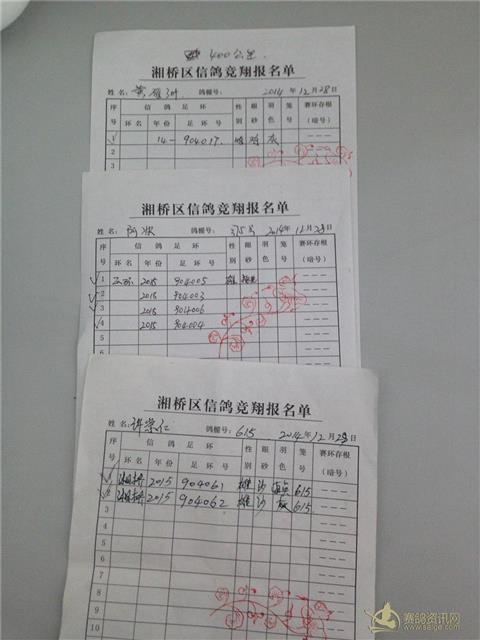 400公里
湘桥区信鸽竞翔报名单
姓名: 鸽棚号: 2014年12月28日
序号 信鸽足环 性别 眼砂 羽色 笼号 赛环存根(暗号)
环名 年份 足环号
1 14- 904017. 灰
2
3
湘桥区信鸽竞翔报名单
姓名: 鸽棚号: 315号 2014年12月28日
序号 信鸽足环 性别 眼砂 羽色 笼号 赛环存根(暗号)
环名 年份 足环号
1 2015 904005 雄
2 2015 904003
3 2015 904006
4 2015 904004
5
6
湘桥区信鸽竞翔报名单
姓名: 许崇仁 鸽棚号: 615 2014年12月28日
序号 信鸽足环 性别 眼砂 羽色 笼号 赛环存根(暗号)
环名 年份 足环号
1 湘桥 2015 904061 雄 沙 615
2 湘桥 2015 904062 雄 沙 灰 615
3
4
5
6
7
8
9
10
赛鸽资讯网
www.saige.com